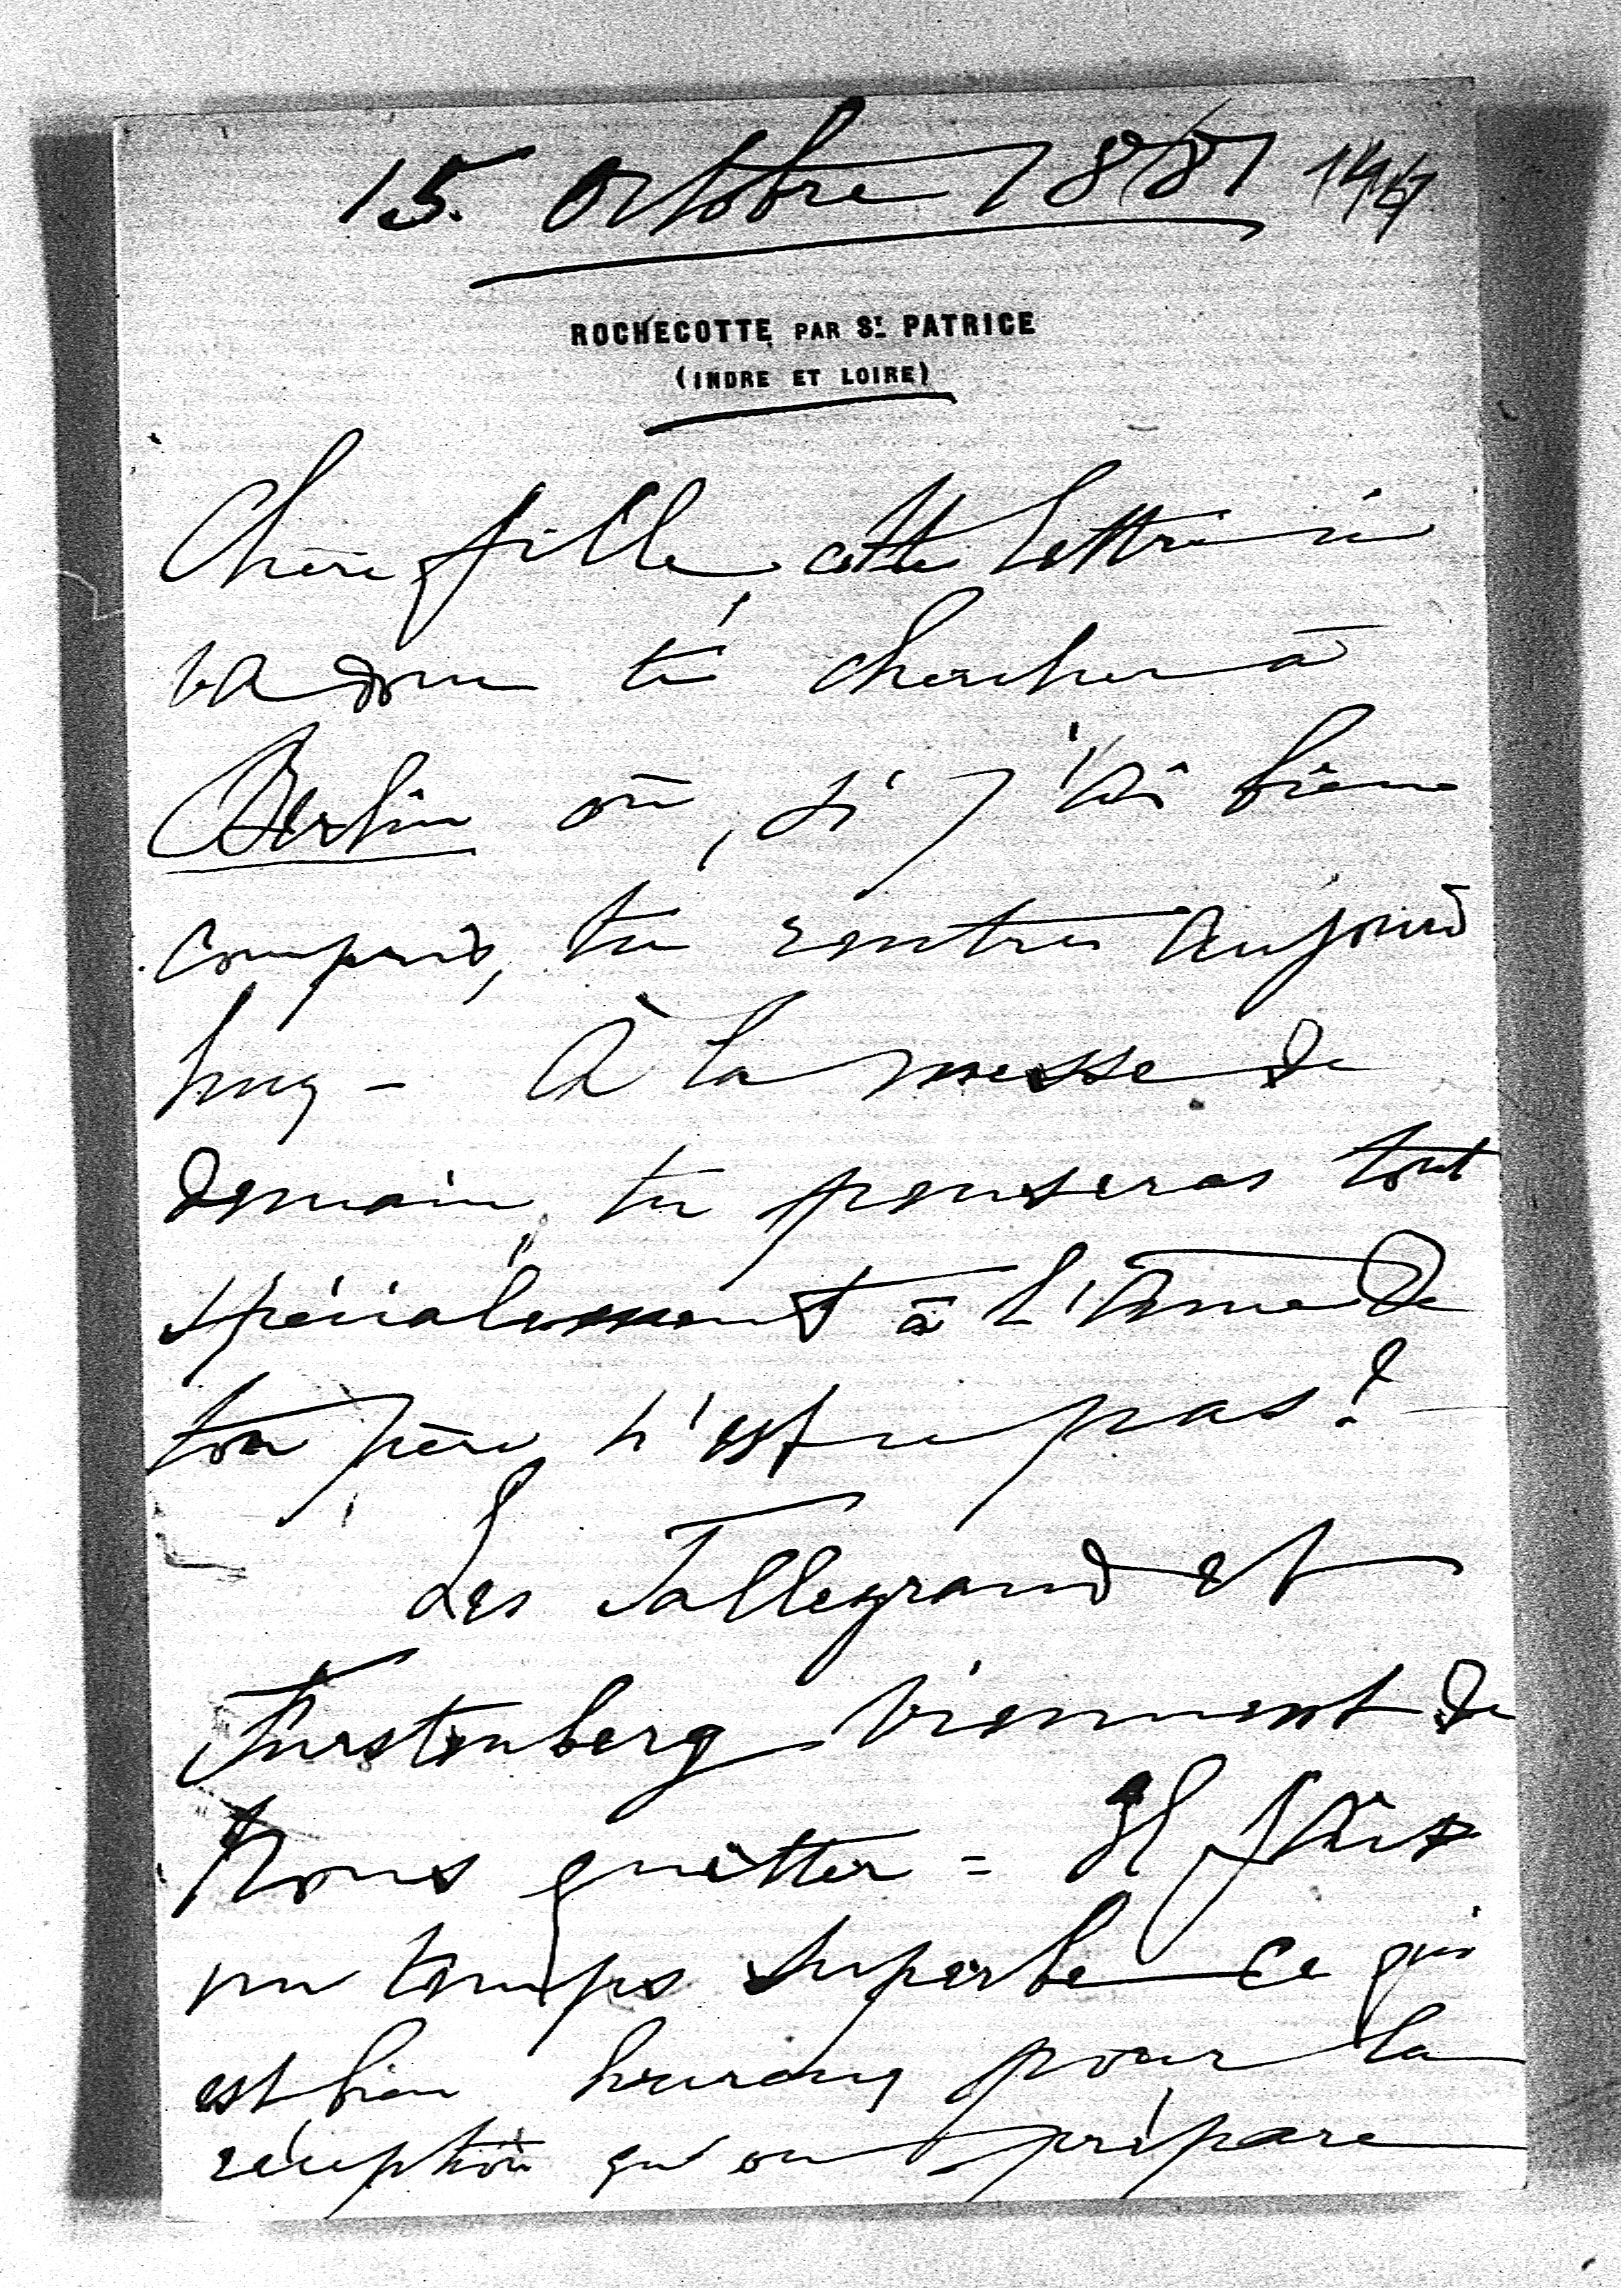 15. Octobre 1881
ROCHECOTTE PAR ST. PATRICE
(INDRE ET LOIRE)
Chère fille, cette lettre ci
va donc te chercher à
Berlin où, si j'ai bien
compris, tu rentres aujourd
huy - À la messe de
demain, tu penseras tout
spécialement à l'âme de
ton père n'est ce pas?
Les Talleyrand et
Furstenberg viennent de
nous quitter = Il fait
un temps superbe ce qui
est bien heureux pour la
réception qu'on prépare